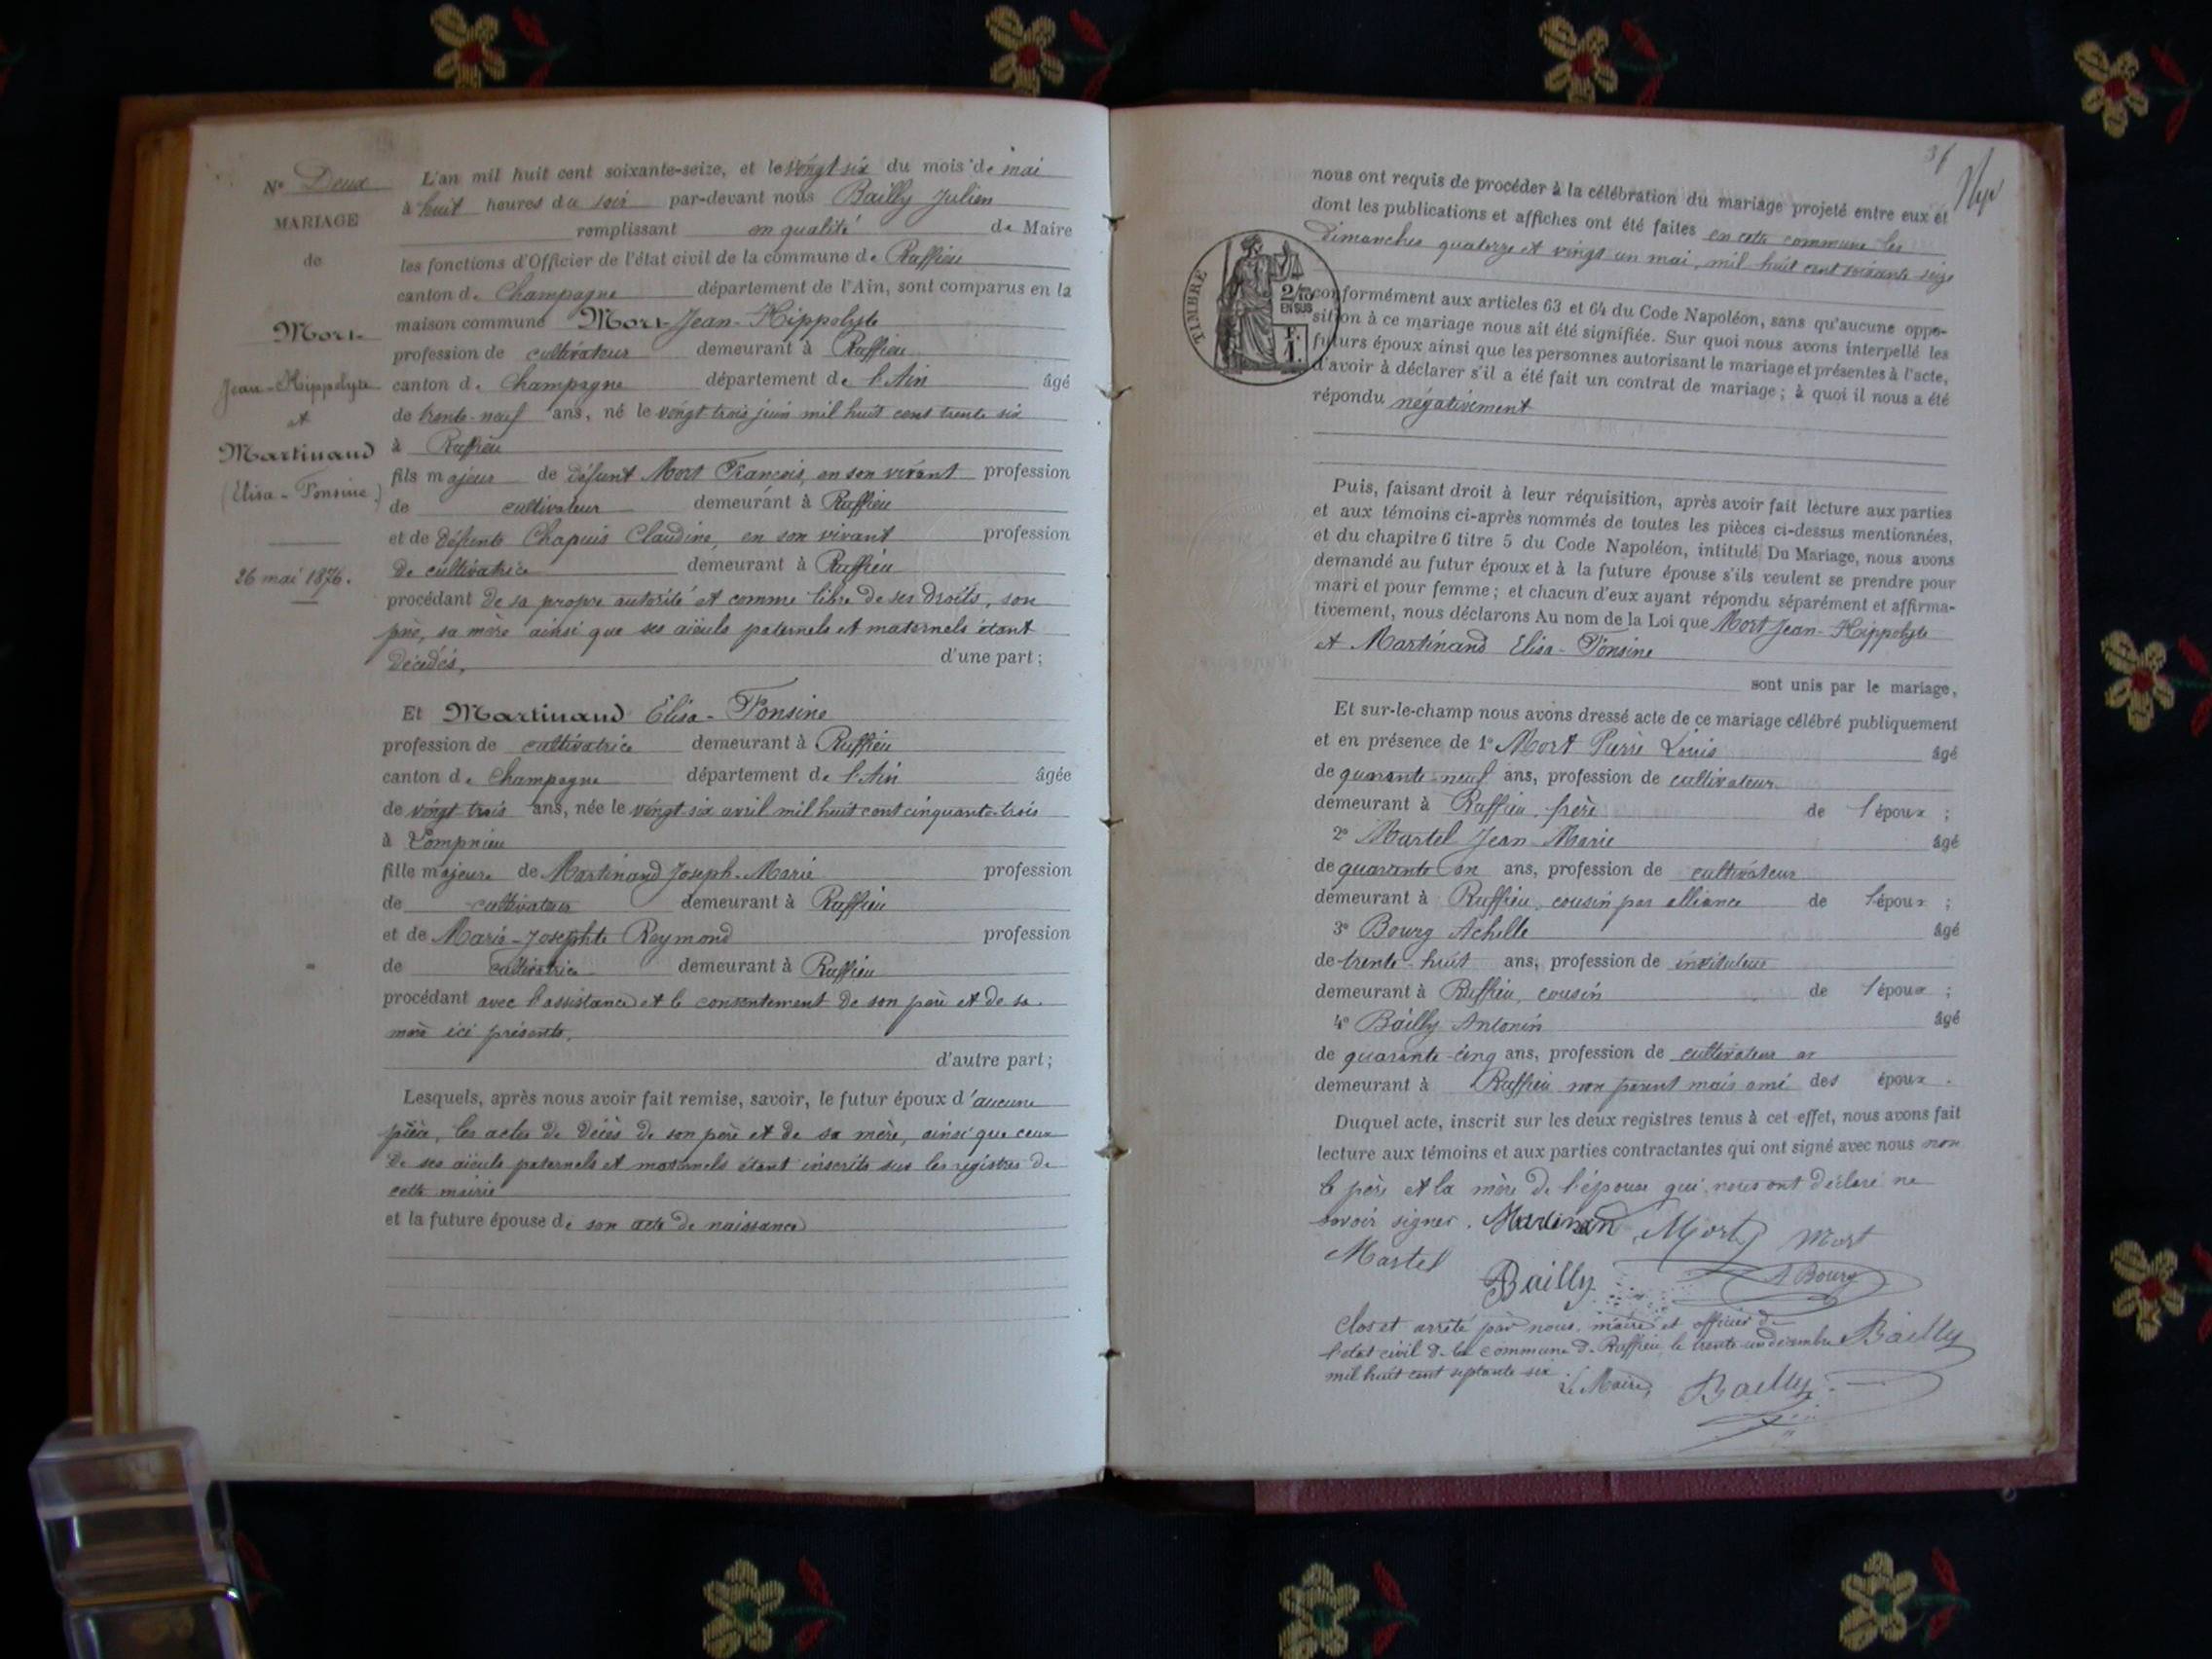 N° Deux
MARIAGE
de
Mort
Jean-Hippolyte
et
Martinand
(Elisa-Fonsine)
26 mai 1876.
L'an mil huit cent soixante-seize, et le vingt six du mois de mai
à huit heures du soir par-devant nous Bailly Julien
remplissant en qualité de Maire
les fonctions d'Officier de l'état civil de la commune de Ruffieu
canton de Champagne département de l'Ain, sont comparus en la
maison commune Mort Jean-Hippolyte
profession de cultivateur demeurant à Ruffieu
canton de Champagne département de l'Ain âgé
de trente-neuf ans, né le vingt trois juin mil huit cent trente six
à Ruffieu
fils majeur de défunt Mort François, en son vivant profession
de cultivateur demeurant à Ruffieu
et de défunte Chapuis Claudine, en son vivant profession
de cultivatrice demeurant à Ruffieu
procédant de sa propre autorité et comme libre de ses droits, son
père, sa mère ainsi que ses aïeuls paternels et maternels étant
décédés, d'une part;
Et Martinand Elisa-Fonsine
profession de cultivatrice demeurant à Ruffieu
canton de Champagne département de l'Ain âgée
de vingt trois ans, née le vingt-six avril mil huit cent cinquante-trois
à Lompnieu
fille majeure de Martinand Joseph-Marie profession
de cultivateur demeurant à Ruffieu
et de Marie-Josephte Reymond profession
de cultivatrice demeurant à Ruffieu
procédant avec l'assistance et le consentement de son père et de sa
mère ici présents,
d'autre part;
Lesquels, après nous avoir fait remise, savoir, le futur époux d'aucune
pièce, les actes de décès de son père et de sa mère, ainsi que ceux
de ses aïeuls paternels et maternels étant inscrits sur les registres de
cette mairie
et la future épouse de son acte de naissance
31
TIMBRE
2/10
EN SUS
F.
1.
nous ont requis de procéder à la célébration du mariage projeté entre eux et
dont les publications et affiches ont été faites en cette commune les
dimanches quatorze et vingt un mai, mil huit cent soixante seize
conformément aux articles 63 et 64 du Code Napoléon, sans qu'aucune oppo-
sition à ce mariage nous ait été signifiée. Sur quoi nous avons interpellé les
futurs époux ainsi que les personnes autorisant le mariage et présentes à l'acte,
d'avoir à déclarer s'il a été fait un contrat de mariage; à quoi il nous a été
répondu négativement
Puis, faisant droit à leur réquisition, après avoir fait lecture aux parties
et aux témoins ci-après nommés de toutes les pièces ci-dessus mentionnées,
et du chapitre 6 titre 5 du Code Napoléon, intitulé Du Mariage, nous avons
demandé au futur époux et à la future épouse s'ils veulent se prendre pour
mari et pour femme; et chacun d'eux ayant répondu séparément et affirma-
tivement, nous déclarons Au nom de la Loi que Mort Jean-Hippolyte
et Martinand Elisa-Fonsine
sont unis par le mariage,
Et sur-le-champ nous avons dressé acte de ce mariage célébré publiquement
et en présence de 1° Mort Pierre Louis âgé
de quarante-neuf ans, profession de cultivateur
demeurant à Ruffieu, frère de l'époux;
2° Martel Jean-Marie âgé
de quarante un ans, profession de cultivateur
demeurant à Ruffieu, cousin par alliance de l'époux;
3° Bourg Achille âgé
de trente-huit ans, profession de instituteur
demeurant à Ruffieu, cousin de l'époux;
4° Bailly Antonin âgé
de quarante-cinq ans, profession de cultivateur
demeurant à Ruffieu non parent mais ami des époux.
Duquel acte, inscrit sur les deux registres tenus à cet effet, nous avons fait
lecture aux témoins et aux parties contractantes qui ont signé avec nous non
le père et la mère de l'épouse qui nous ont déclaré ne
savoir signer. Martinand Mort Mort
Martel Bailly A Bourg
Clos et arrêté par nous, maire et officier de
l'état civil de la commune de Ruffieu, le trente-un décembre Bailly
mil huit cent septante six
Le Maire, Bailly